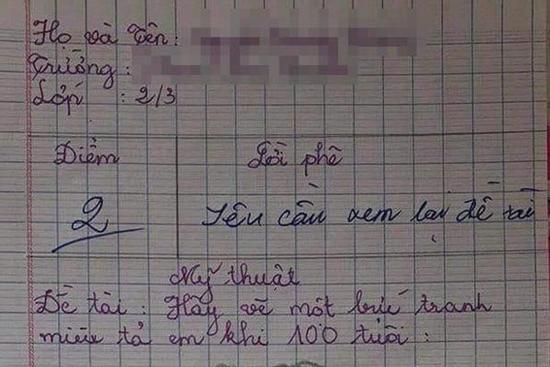 Họ và Tên :
Trường :
Lớp : 2/3
Điểm Lời phê
2 Yêu cầu xem lại đề tài
Mỹ thuật
Đề tài : Hãy vẽ một bức tranh
miêu tả em khi 100 tuổi :